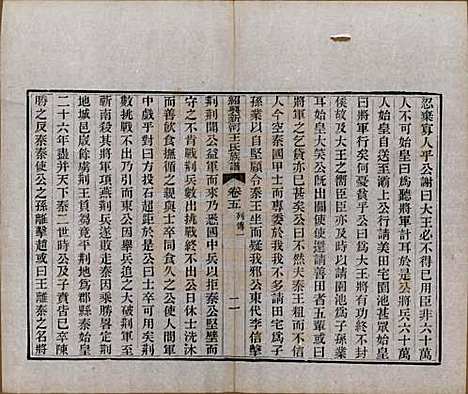 忍棄寡人乎公謝曰大王必不得已用臣非六十萬
人不可始皇曰爲聽將軍計耳於是公將兵六十萬
始皇自送至灞上公行請美田宅園池甚眾始皇
曰將軍行矣何憂貧乎公曰爲大王將有功終不封
侯故及大王之嚮臣臣亦及時以請園池爲子孫業
耳始皇大笑公旣至關使使還請善田者五輩或曰
將軍之乞貸亦已甚矣公曰不然夫秦王粗而不信
人今空秦國甲士而專委於我我不多請田宅爲子
孫業以自堅顧令秦王坐而疑我邪公東代李信擊
紹興新河王氏族譜 卷五 列傳 二
荆荆聞公益軍而來乃悉國中兵以拒秦公堅壁而
守之不肯戰荆兵數出挑戰終不出公日休士洗沐
而善飲食撫循之親與士卒同食久之公使人問軍
中戲乎對曰方投石超距於是公曰士卒可用矣荆
數挑戰不出乃引而東公因舉兵追之大破荆軍至
蘄南殺其將軍項燕荆兵遂敗走秦因乘勝畧定荆
地城邑歲餘虜荆王負芻竟平荆地爲郡縣秦始皇
二十六年盡并天下秦二世時公及子賁皆已卒陳
勝之反秦秦使公之孫離擊趙或曰王離秦之名將